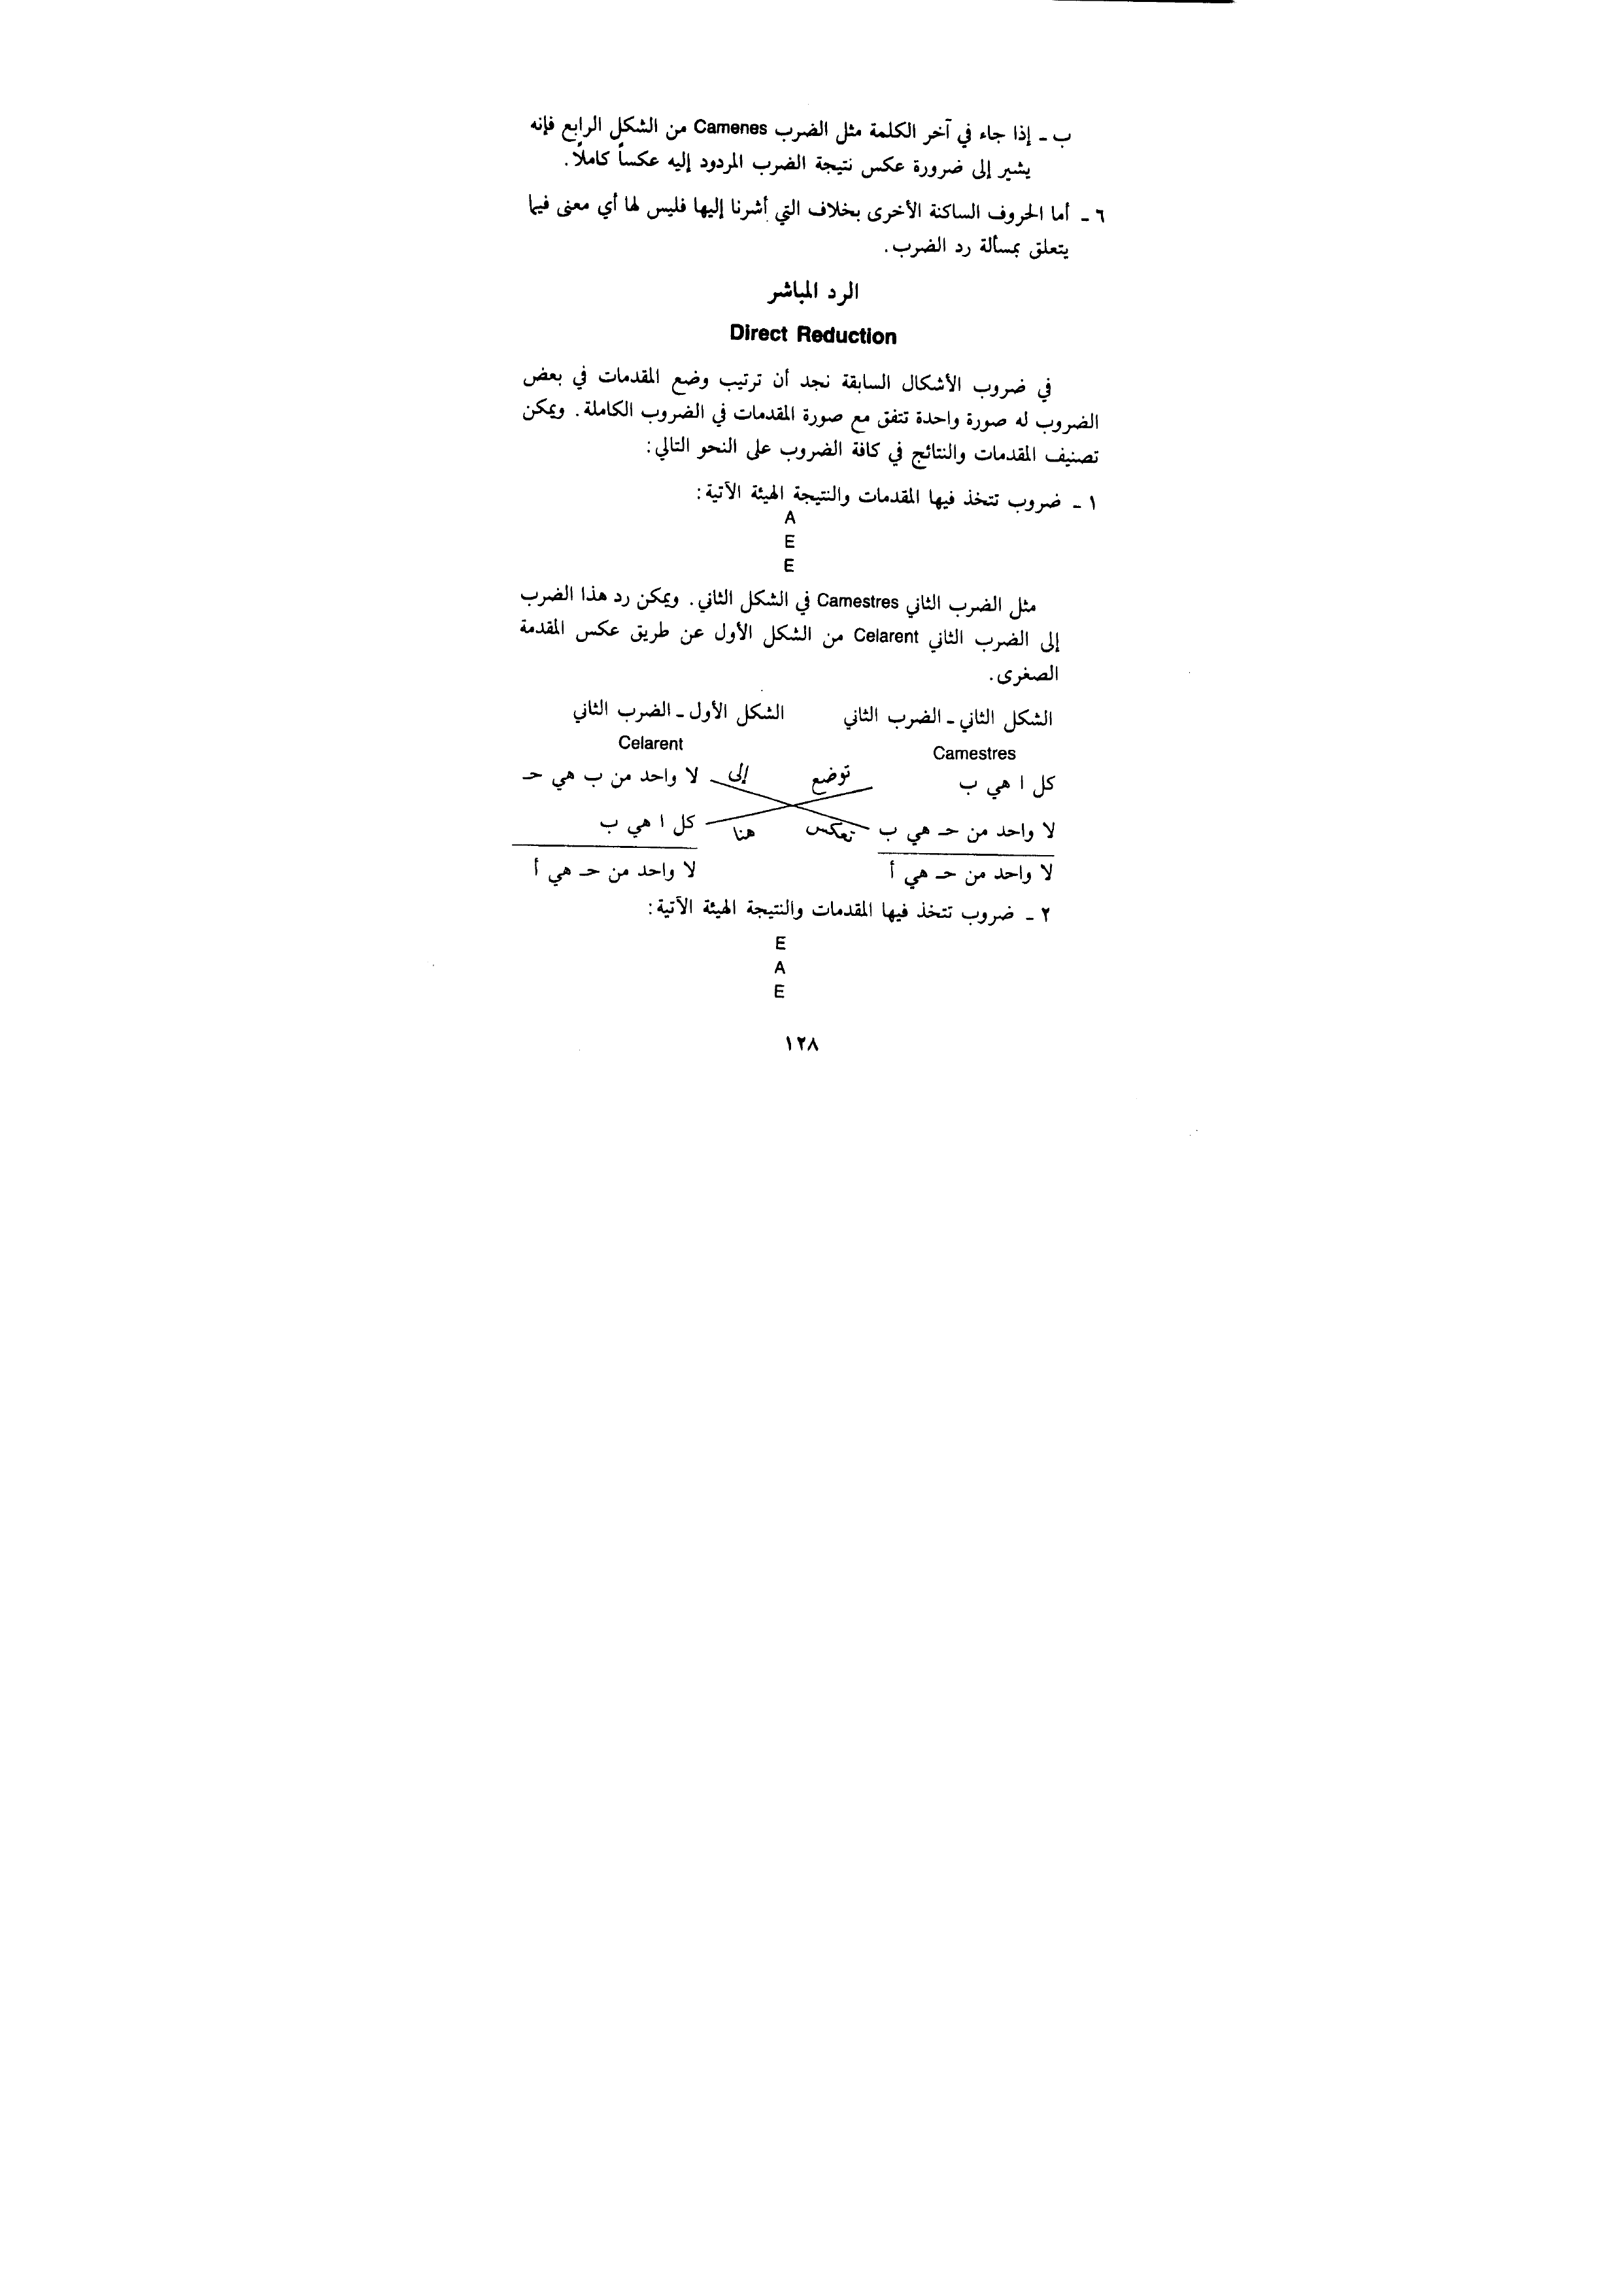 ب ـ إذا جاء في آخر الكلمة مثل الضرب Camenes من الشكل الرابع فإنه
يشير إلى ضرورة عكس نتيجة الضرب المردود إليه عكساً كاملاً.
٦ ـ أما الحروف الساكنة الأخرى بخلاف التي أشرنا إليها فليس لها أي معنى فيما
يتعلق بمسألة رد الضرب.
الرد المباشر
Direct Reduction
في ضروب الأشكال السابقة نجد أن ترتيب وضع المقدمات في بعض
الضروب له صورة واحدة تتفق مع صورة المقدمات في الضروب الكاملة. ويمكن
تصنيف المقدمات والنتائج في كافة الضروب على النحو التالي:
١ ـ ضروب تتخذ فيها المقدمات والنتيجة الهيئة الآتية:
A
E
E
مثل الضرب الثاني Camestres في الشكل الثاني. ويمكن رد هذا الضرب
إلى الضرب الثاني Celarent من الشكل الأول عن طريق عكس المقدمة
الصغرى.
الشكل الثاني ـ الضرب الثاني الشكل الأول ـ الضرب الثاني
Camestres Celarent
كل ا هي ب توضع إلى لا واحد من ب هي حـ
لا واحد من حـ هي ب تعكس هنا كل ا هي ب
لا واحد من حـ هي أ لا واحد من حـ هي أ
٢ ـ ضروب تتخذ فيها المقدمات والنتيجة الهيئة الآتية:
E
A
E
١٢٨